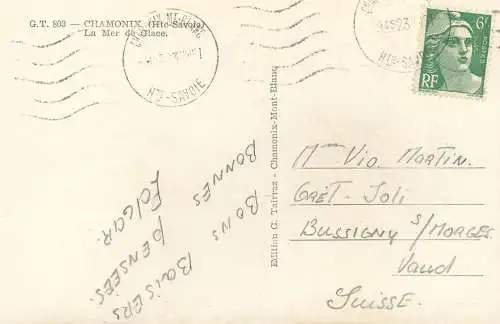 G.T. 803 — CHAMONIX (Hte-Savoie)
"La Mer de Glace.
CHAMONIX MT-BLANC
HTE-SAVOIE
HTE-SA
6F
POSTES
RF
BONNES PENSÉES.
BONS BAISERS
EDGAR.
Edition G. Tairraz - Chamonix-Mont-Blanc
Mme Vio. MARTIN.
CRÊT-JOLI
BUSSIGNY s/MORGES
VAUD
SUISSE.